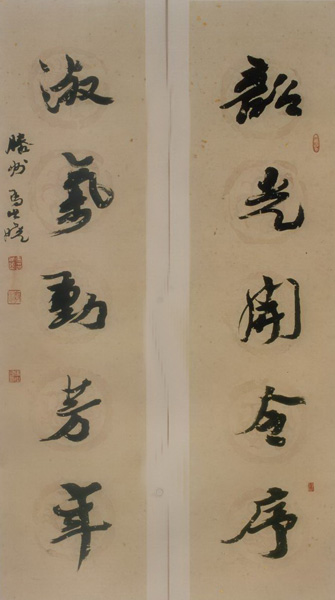 韶光開令序
淑氣動芳年
滕州馬世曉